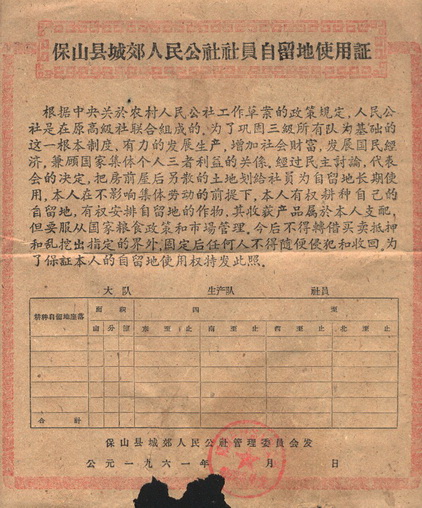 保山县城郊人民公社社員自留地使用証
根据中央关於农村人民公社工作草案的政策规定，人民公
社是在原高級社联合組成的，为了巩固三級所有队为基础的
这一根本制度，有力的发展生产，增加社会財富，发展国民經
济，兼顧国家集体个人三者利益的关係，經过民主討論，代表
会的决定，把房前屋后另散的土地划給社員为自留地长期使
用，本人在不影响集体劳动的前提下，本人有权耕种自己的
自留地，有权安排自留地的作物，其收获产品属於本人支配，
但要服从国家粮食政策和市場管理。今后不得轉借买卖抵押
和乱挖出指定的界外，固定后任何人不得随便侵犯和收回，为
了保証本人的自留地使用权特发此照。
大队 生产队 社員
耕种自留地座落 面积 四 至
亩 分 厘 东 至 南 至 西 至 北 至
合 計
保山县城郊人民公社管理委員会发
公元一九六一年 月 日